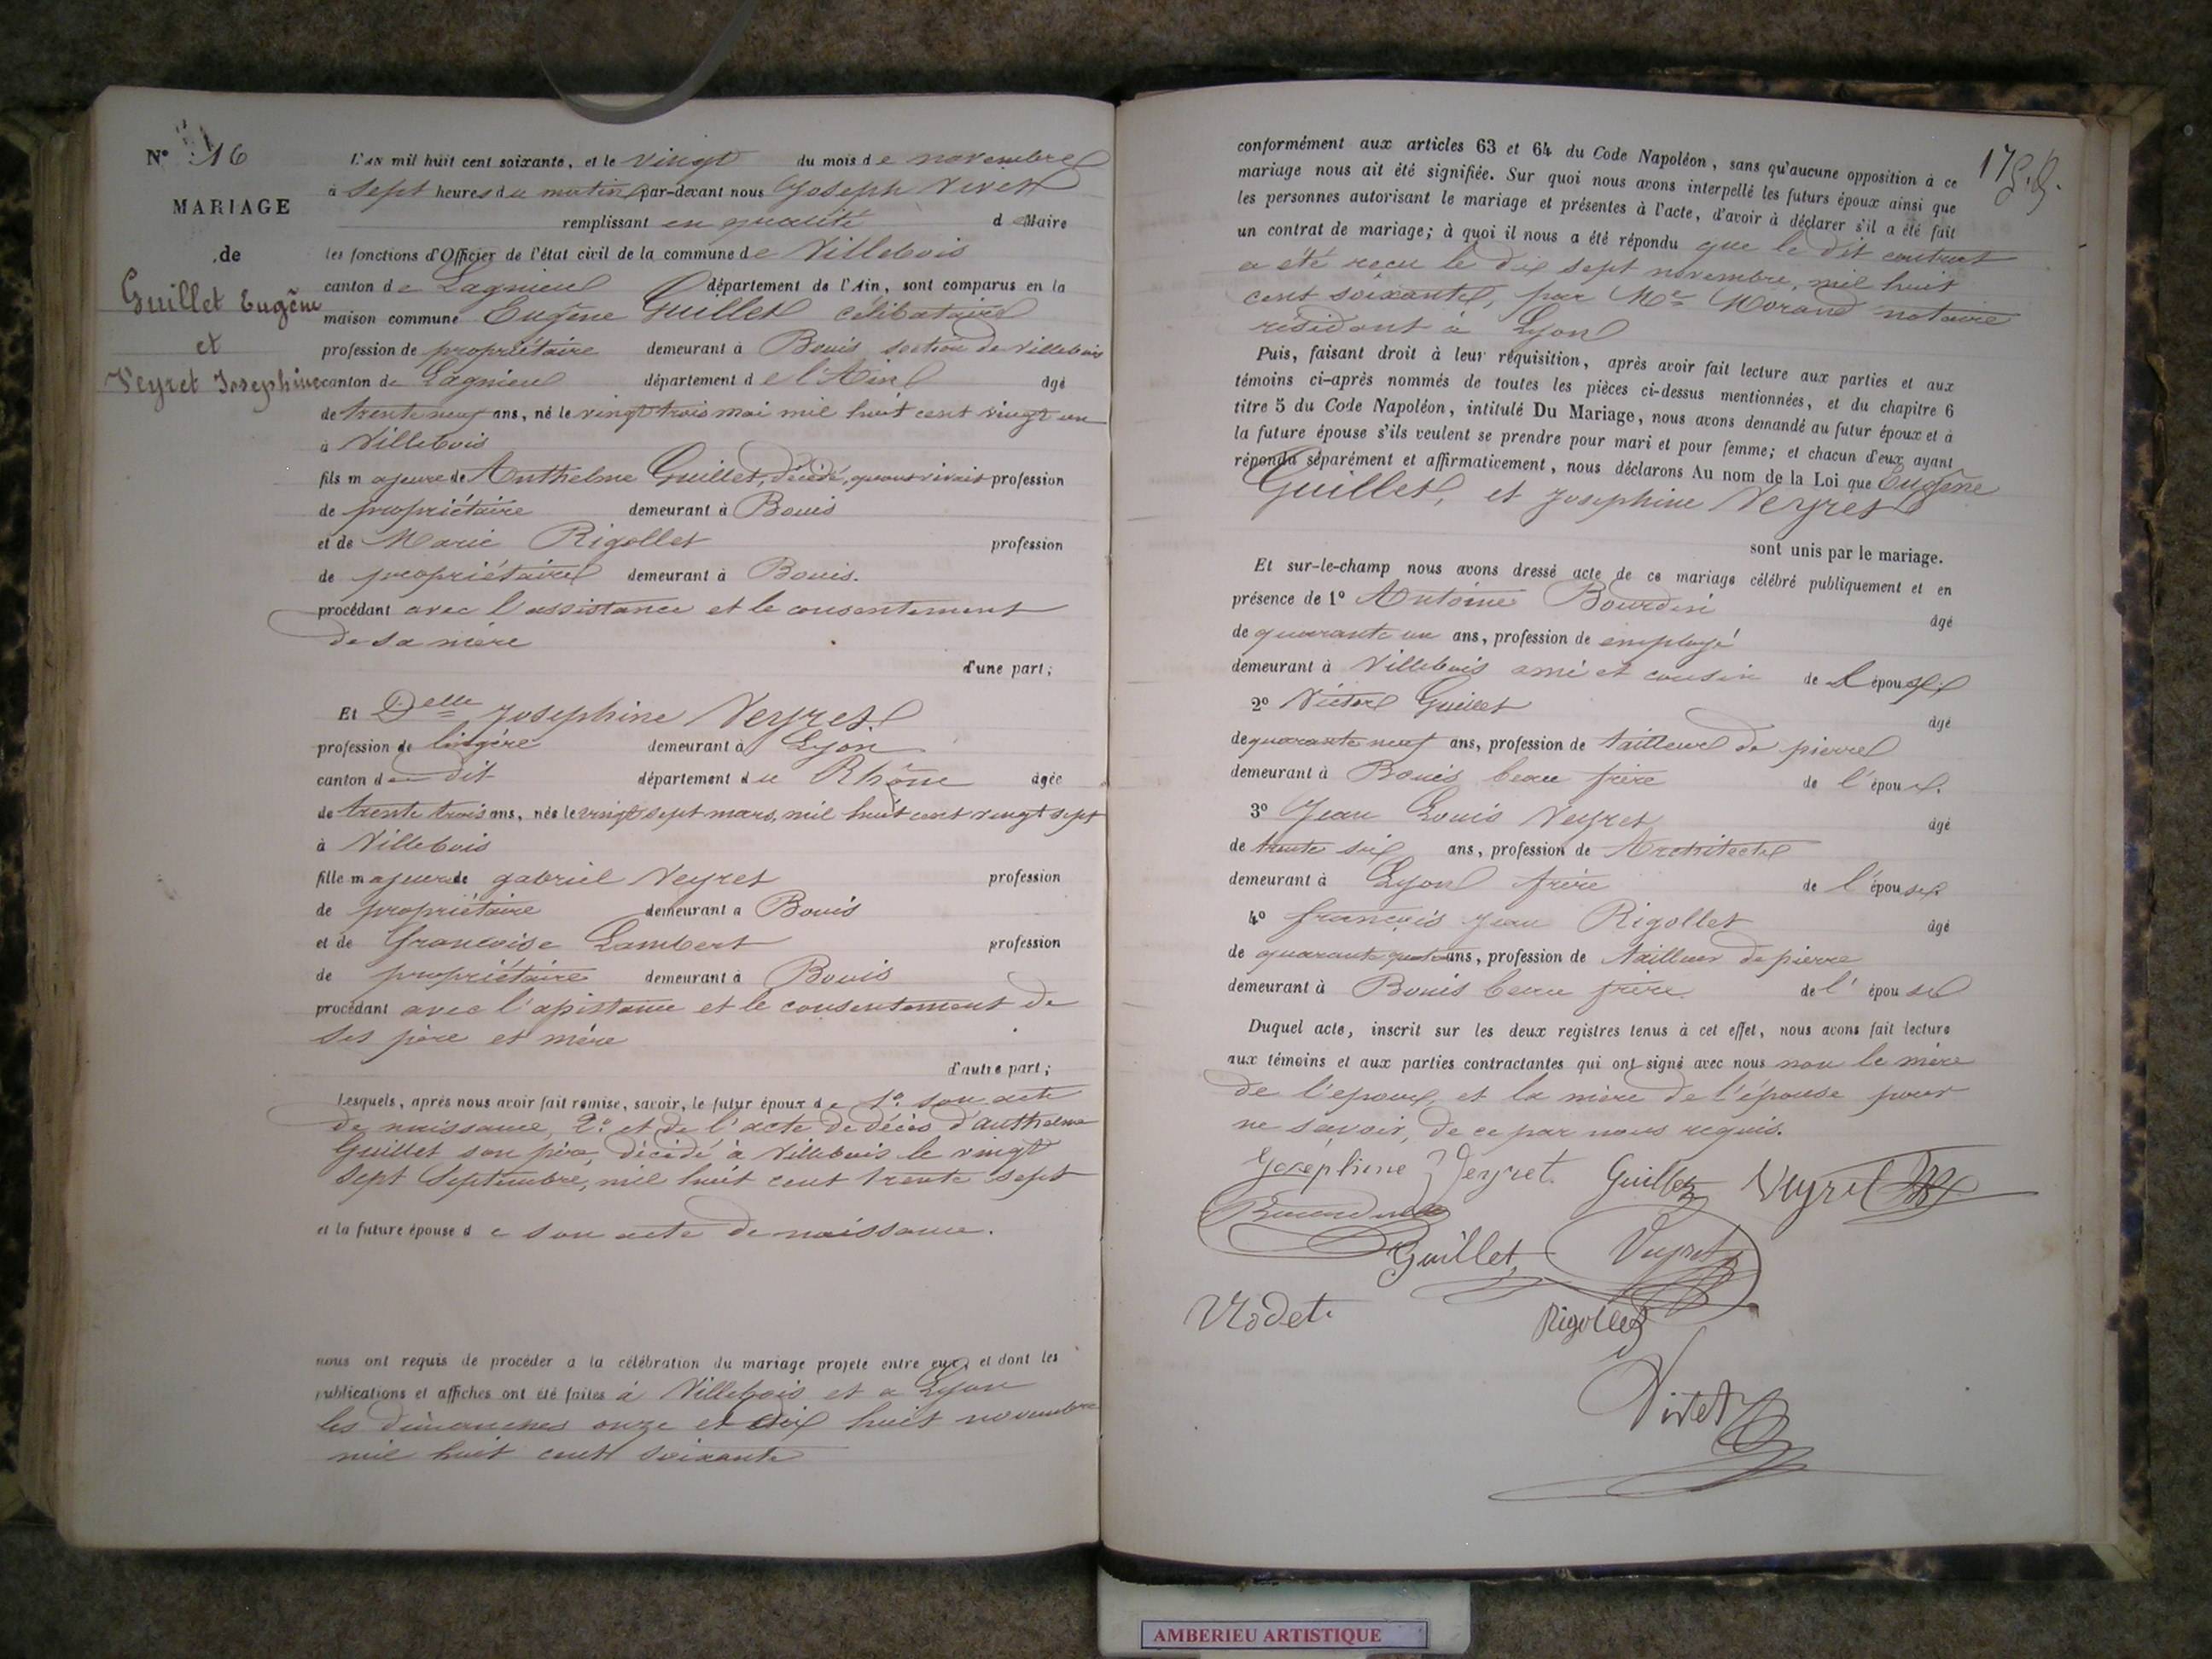 N° 16
MARIAGE
de
Guillet Eugène
et
Veyret Josephine
L'AN mil huit cent soixante, et le vingt du mois de novembre
à sept heures du matin par-devant nous Joseph Vivet
remplissant en qualité de Maire
les fonctions d'Officier de l'état civil de la commune de Villebois
canton de Lagnieu département de l'Ain, sont comparus en la
maison commune Eugène Guillet célibataire
profession de propriétaire demeurant à Bouis section de Villebois
canton de Lagnieu département de l'Ain âgé
de trente neuf ans, né le vingt trois mai mil huit cent vingt un
à Villebois
fils majeur de Anthelme Guillet, décédé, quand vivait profession
de propriétaire demeurant à Bouis
et de Marie Rigollet profession
de propriétaire demeurant à Bouis.
procédant avec l'assistance et le consentement
de sa mère
d'une part;
Et Delle Josephine Veyret
profession de lingère demeurant à Lyon
canton du dit département du Rhône âgée
de trente trois ans, née le vingt sept mars, mil huit cent vingt sept
à Villebois
fille majeure de gabriel Veyret profession
de propriétaire demeurant à Bouis
et de Françoise Lambert profession
de propriétaire demeurant à Bouis
procédant avec l'assistance et le consentement de
ses père et mère
d'autre part;
Lesquels, après nous avoir fait remise, savoir, le futur époux de 1° son acte
de naissance, 2° et de l'acte de décès d'anthelme
Guillet son père, décédé à Villebois le vingt
sept Septembre, mil huit cent trente sept
et la future épouse de son acte de naissance.
nous ont requis de procéder à la célébration du mariage projeté entre eux, et dont les
publications et affiches ont été faites à Villebois et a Lyon
les dimanches onze et dix huit novembre
mil huit cent soixante
17
conformément aux articles 63 et 64 du Code Napoléon, sans qu'aucune opposition à ce
mariage nous ait été signifiée. Sur quoi nous avons interpellé les futurs époux ainsi que
les personnes autorisant le mariage et présentes à l'acte, d'avoir à déclarer s'il a été fait
un contrat de mariage; à quoi il nous a été répondu que le dit contrat
a été reçu le dix sept novembre, mil huit
cent soixante, par Me Morand notaire
résidant à Lyon
Puis, faisant droit à leur réquisition, après avoir fait lecture aux parties et aux
témoins ci-après nommés de toutes les pièces ci-dessus mentionnées, et du chapitre 6
titre 5 du Code Napoléon, intitulé Du Mariage, nous avons demandé au futur époux et à
la future épouse s'ils veulent se prendre pour mari et pour femme; et chacun d'eux ayant
répondu séparément et affirmativement, nous déclarons Au nom de la Loi que Eugène
Guillet, et Josephine Veyret
sont unis par le mariage.
Et sur-le-champ nous avons dressé acte de ce mariage célébré publiquement et en
présence de 1° Antoine Bourdin âgé
de quarante un ans, profession de employé
demeurant à Villebois ami et cousin de L'épouse
2° Victor Guillet âgé
de quarante neuf ans, profession de tailleur de pierre
demeurant à Bouis beau frère de l'époux.
3° Jean Louis Veyret âgé
de trente six ans, profession de Architecte
demeurant à Lyon frère de l'épouse
4° françois Jean Rigollet âgé
de quarante quatre ans, profession de tailleur de pierre
demeurant à Bouis beau frère de l'épouse
Duquel acte, inscrit sur les deux registres tenus à cet effet, nous avons fait lecture
aux témoins et aux parties contractantes qui ont signé avec nous non la mère
de l'époux et la mère de l'épouse pour
ne savoir, de ce par nous requis.
Joséphine Veyret. Guillet Veyret
Bourdin
Guillet Veyret
Vodet
Rigollet
Vivet
AMBERIEU ARTISTIQUE